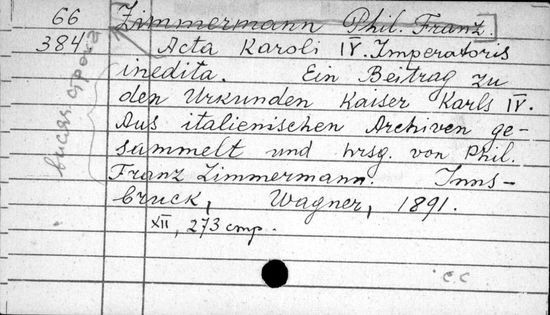 66
384
Zimmermann Phil. Franz.
Acta Karoli IV. Imperatoris
inedita. Ein Beitrag zu
den Urkunden Kaiser Karls IV.
Aus italienischen Archiven ge-
sammelt und hrsg. von Phil.
Franz Zimmermann. Inns-
bruck, Wagner, 1891.
XII, 273 стр.
висяч. строка
с.с.